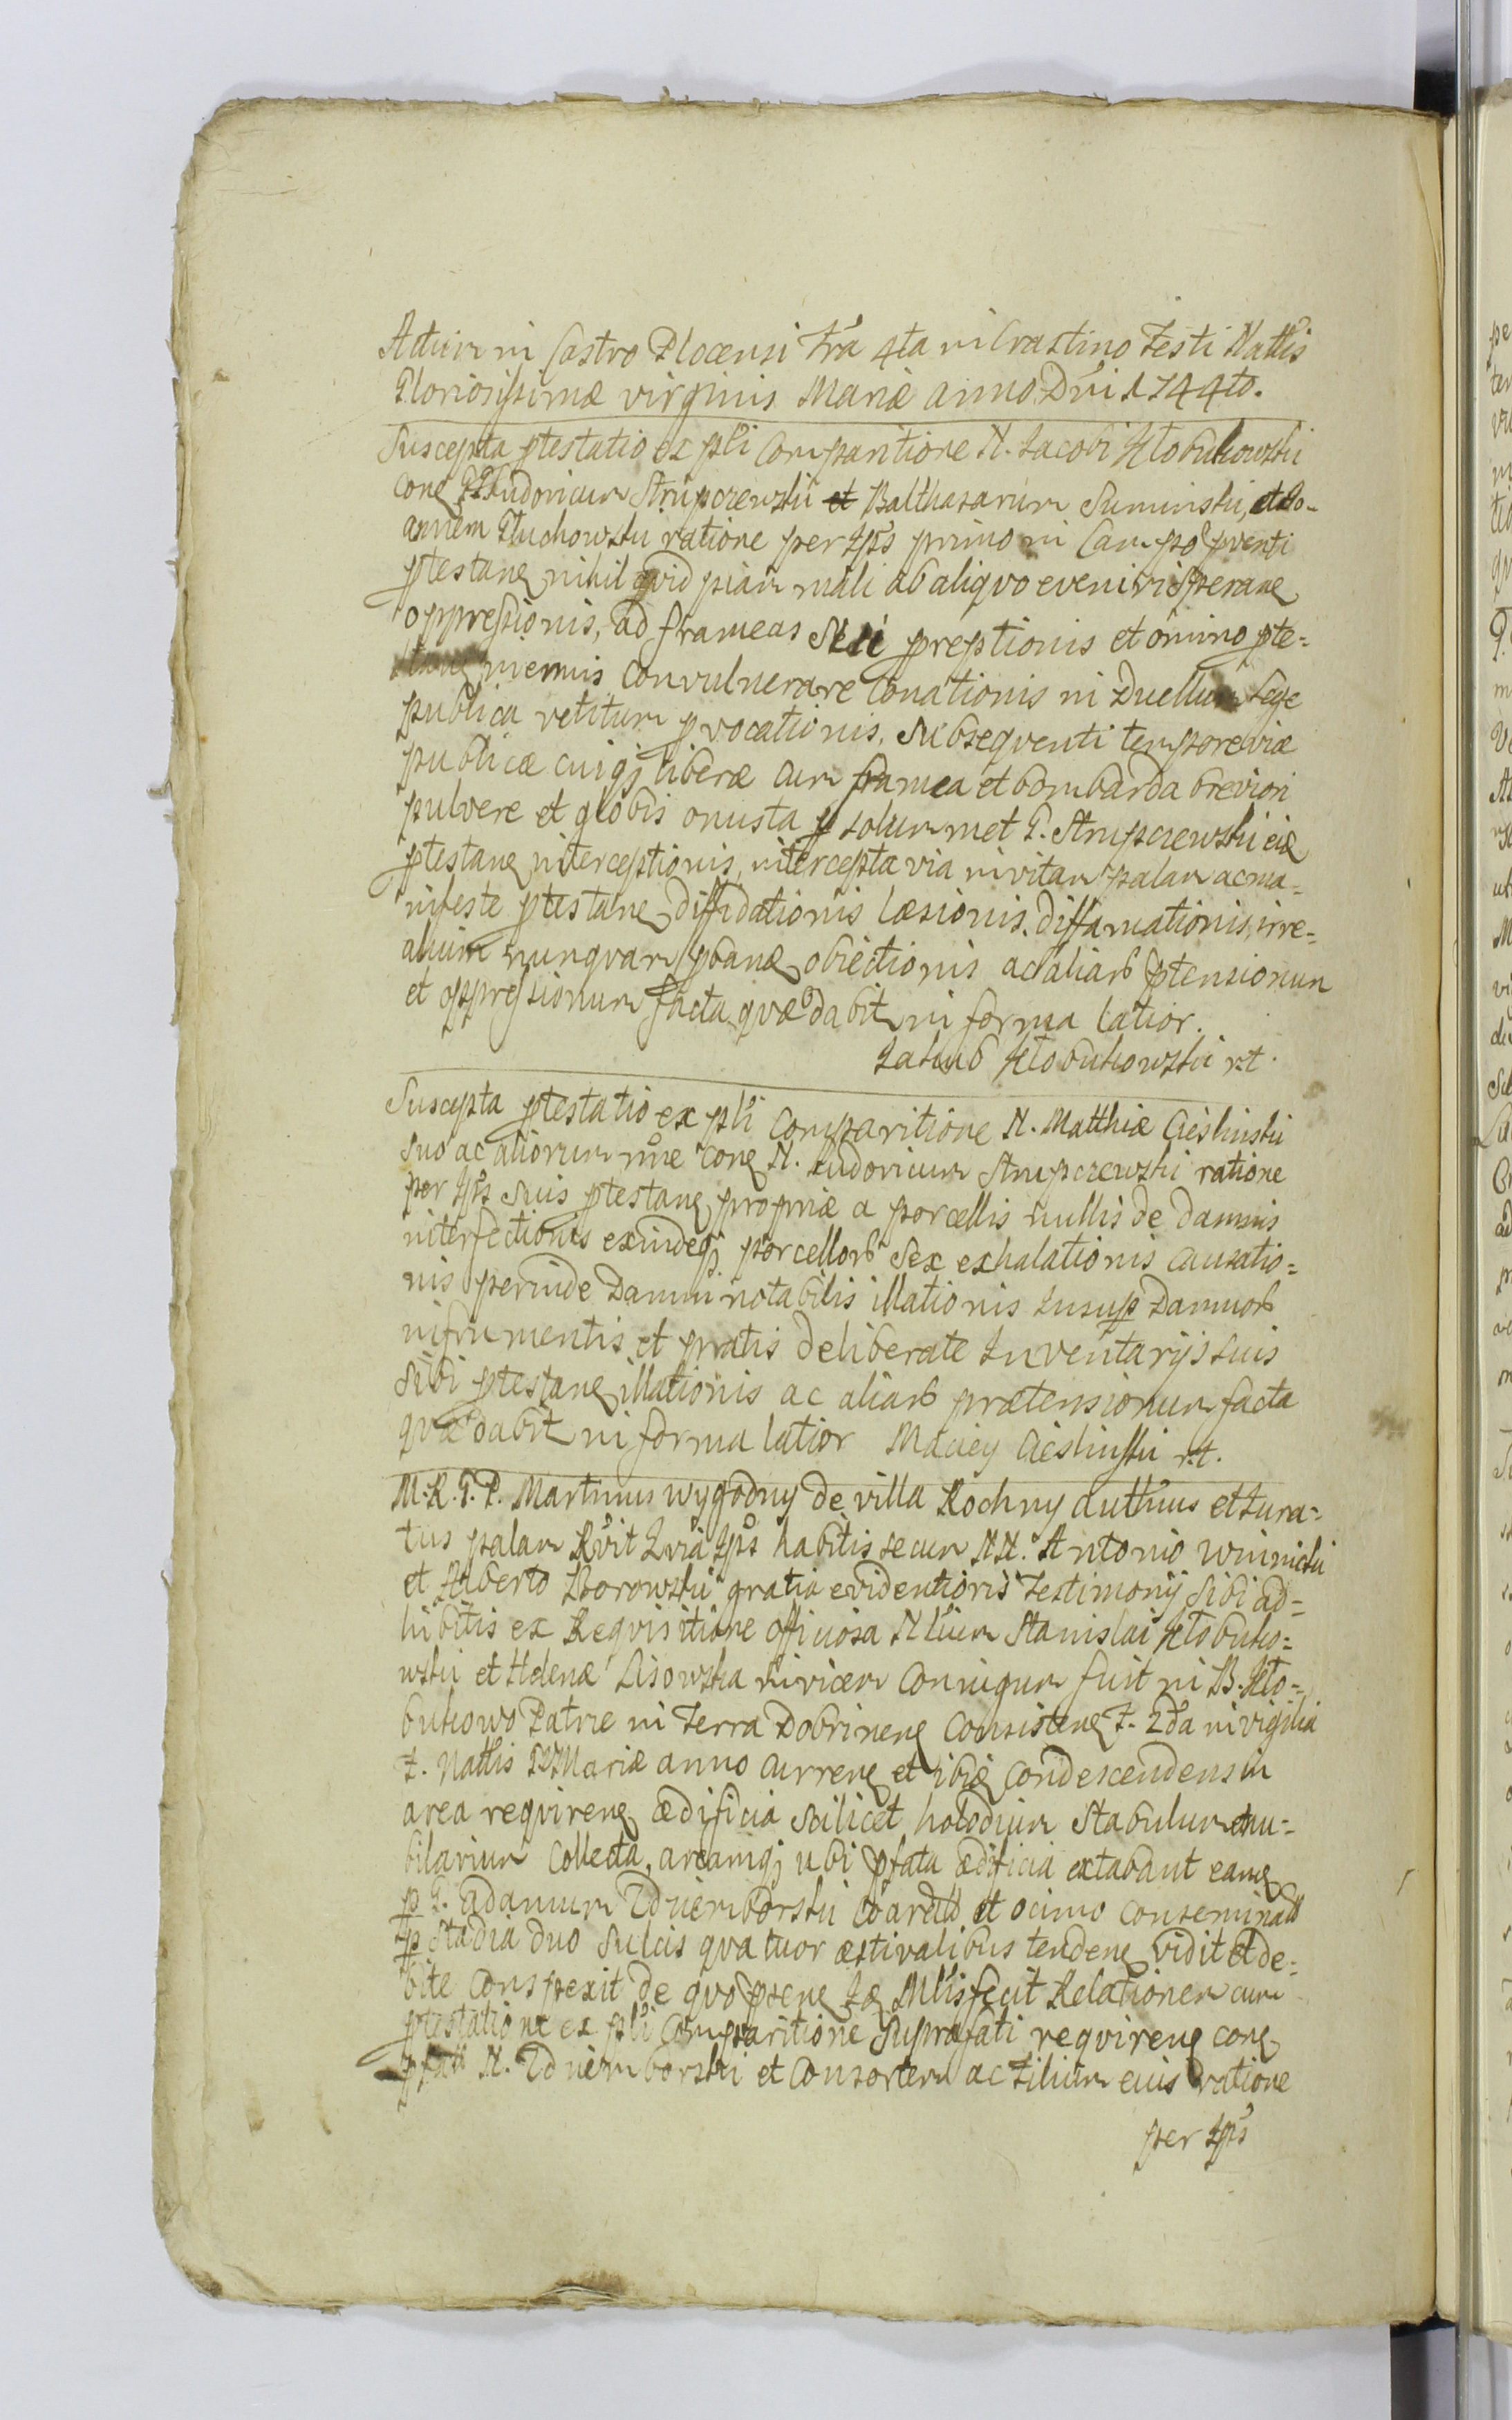 Actum in Castro Plocensi fra 4ta in Crastino Festi Nattis
Gloriosissimæ virginis Mariæ anno Dni 1744to.
Suscepta ptestatio ex psli Comparitione N. Jacobi Kłobukowski
con Ludovicum Strupczewski et Balthasarum Suminski, et Jo-
annem Głuchowski ratione per Ips primo in Campo pventi
ptestan nihil qvid piam mali ab aliqvo eveniri Speran
oppressionis, ad frameas Sui preptionis et omino pte=
inermis convulnerare Conationis in Duellum Lege
publica vetitum pvocationis, Subseqventi tempore viæ
publicæ cuiqz liberæ cum framea et bombarda breviori
pulvere et globis onusta p solum met G. Strupczewski
ptestan interceptionis, intercepta via in vitam palam ac ma=
nifeste ptestan diffidationis læsionis, diffamationis, irre=
alium nunqvam pban obiectionis ac aliarb ptensionum
et oppressionum facta qvæ dabit in forma latior.
Jakub Kłobukowski rt.
Suscepta ptestatio ex psli Comparitione N. Matthiæ Cieslinski
suo ac aliorum nne con N. Ludovicum Strupczewski ratione
per Ips Suis ptestan propriæ a porcellis nullis de damnis
interfectionis exindeqz porcellorb Sex exhalationis causatio=
nis perinde Damni notabilis illationis Insup Damnorb
in frumentis et pratis deliberate Inventarijs suis
Sibi ptestan illationis ac aliarb prætensionum facta
qvæ dabit in forma latior Maciey Cieslinski rt.
M. R. G. P. Martinus wygodny de villa Rochny authus et Jura=
tus palam Rvit Qvia Ips habitis secum NN. Antonio winnicki
et Alberto Borowski gratia evidentioris Testimonij Sibi ad=
hibitis ex Reqvisitione officiosa Stanislai Kłobuko=
wski et Helenæ Lisowska invicem Coniugum fuit in B. Kło=
bukowo Patrze in Terra Dobrinen Consisten F. 2da in vigilia
F. Nattis Mariæ anno curren et ibi Condescendens in
area reqviren ædificia Scilicet holodium Stabulum et nu=
bilarium Collecta, areamqz ubi pfata ædificia extabant eam
p G. adamum Dziemborski et ocimo conseminatt
p Stadia duo Sulcis qvatuor æstivalibus tenden vidit et de=
bite Conspexit de qvo psen Mtis fecit Relationem cum
ptestatione ex psli Comparitione Suprafati reqviren con
N. Dziemborski et Consortem ac Filium eius ratione
per Ips